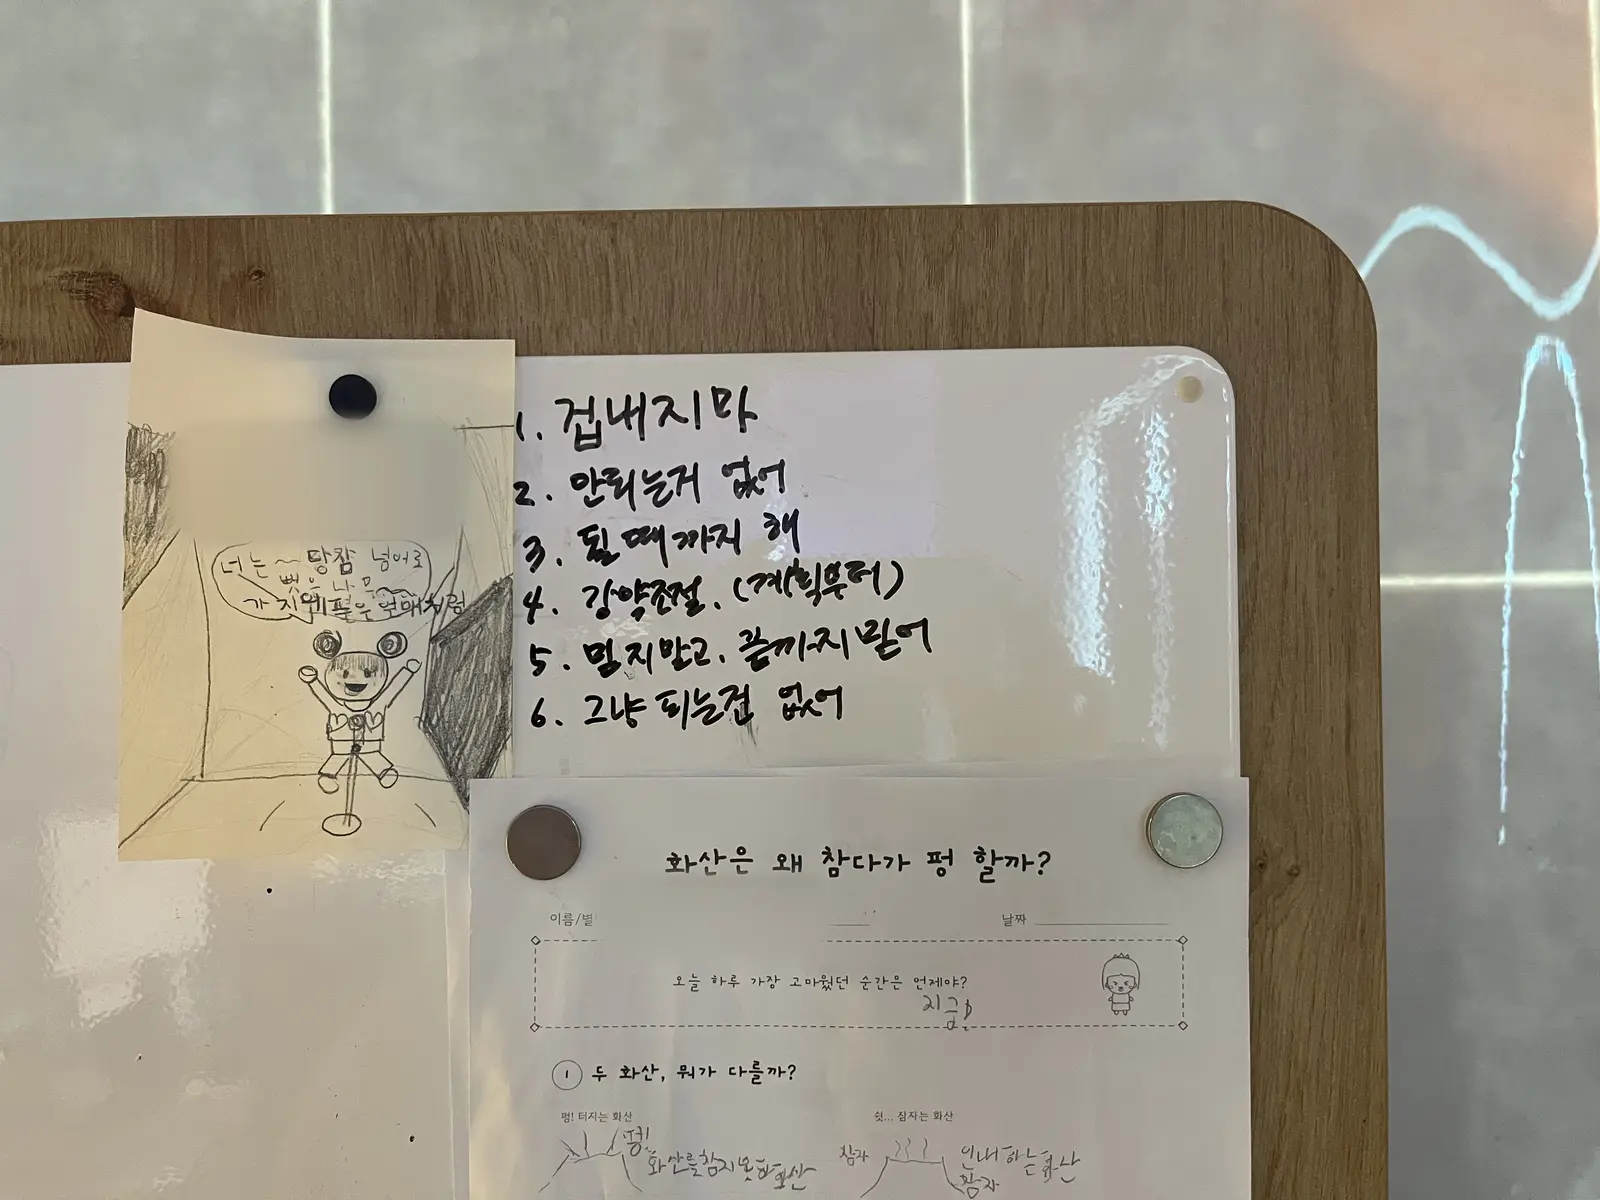 너는~ 당잠 넘어로
뻣은 나무
가지에 핀은 열매처럼
1. 겁내지마
2. 안되는거 없어
3. 될때까지 해
4. 강약조절. (계획부터)
5. 밀지말고. 끝까지 믿어
6. 그냥 되는건 없어
화산은 왜 참다가 펑 할까?
이름/별
날짜
오늘 하루 가장 고마웠던 순간은 언제야?
지금!
1 두 화산, 뭐가 다를까?
펑! 터지는 화산
쉿... 잠자는 화산
펑!
화산를참지못한화산
참자
인내하는화산
참자